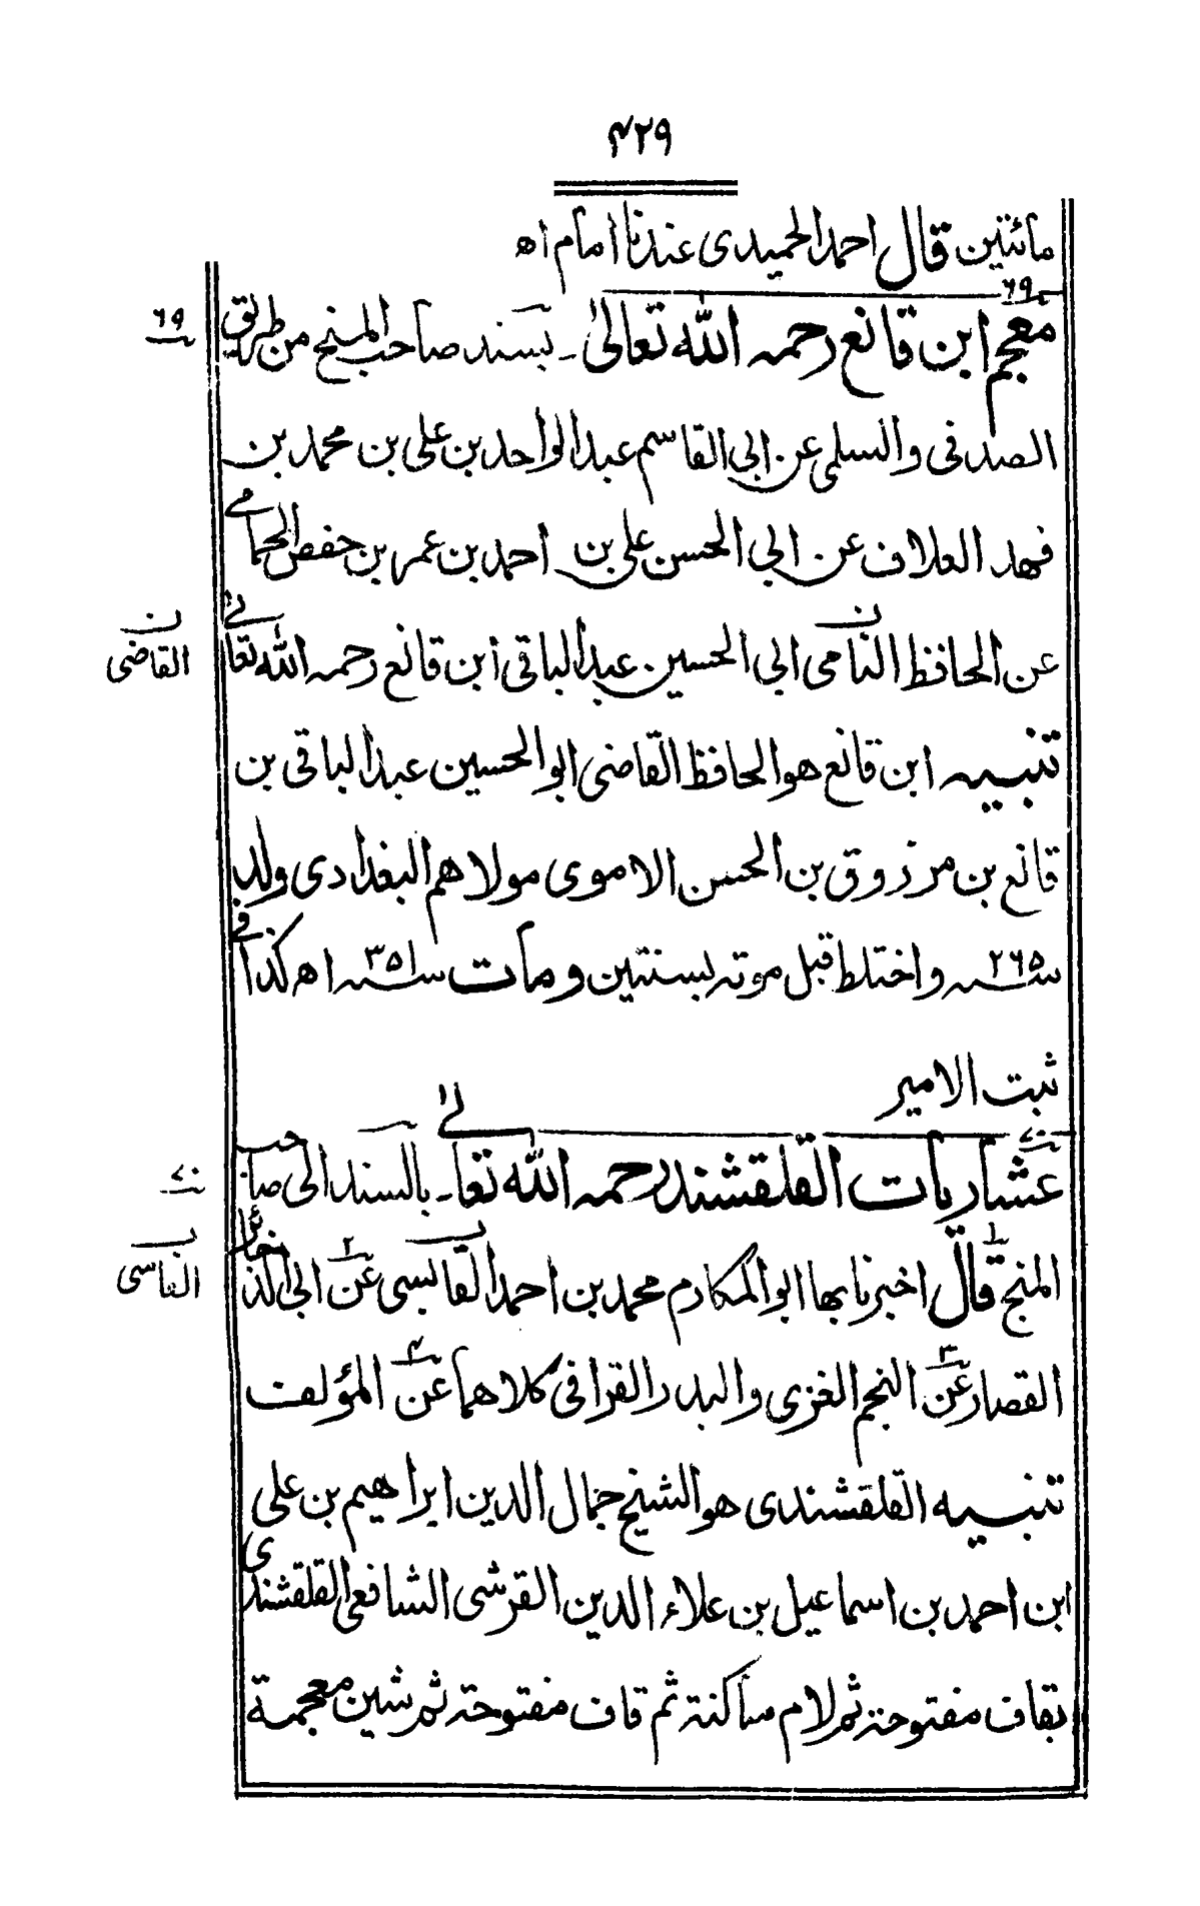 ۴۲۹
مائتين قال احمد الحميدى عندنا امام اه
۶۹
معجم ابن قانع رحمه الله تعالىٰ ۔ بسند صاحب المنح من طريق
۶۹
الصدفى والسلمى عن ابى القاسم عبد الواحد بن على بن محمد بن
فهد العلاف عن ابى الحسن على بن احمد بن عمر بن حفص الحمامى
عن الحافظ النامى ابى الحسين عبد الباقى ابن قانع رحمه الله تعالىٰ
ن القاضى
تنبيه ابن قانع هو الحافظ القاضى ابو الحسين عبد الباقى بن
قانع بن مرزوق بن الحسن الاموى مولاهم البغدادى ولد
سنه ۲۶۵ واختلط قبل موته بسنتين ومات سنه ۳۵۱ اه كذا فى
ثبت الامير
۷۰
عشاريات القلقشند رحمه الله تعالىٰ ۔ بالسند الى صاحب
۷۰
المنح قال اخبرنا بها ابو المكارم محمد بن احمد القابسى عن ابى الذخائر
ب الفاسى
القصار عن النجم الغزى والبدر القرافى كلاهما عن المؤلف
تنبيه القلقشندى هو الشيخ جمال الدين ابراهيم بن على
ابن احمد بن اسماعيل بن علاء الدين القرشى الشافعى القلقشندى
بقاف مفتوحة ثم لام ساكنة ثم قاف مفتوحة ثم شين معجمة